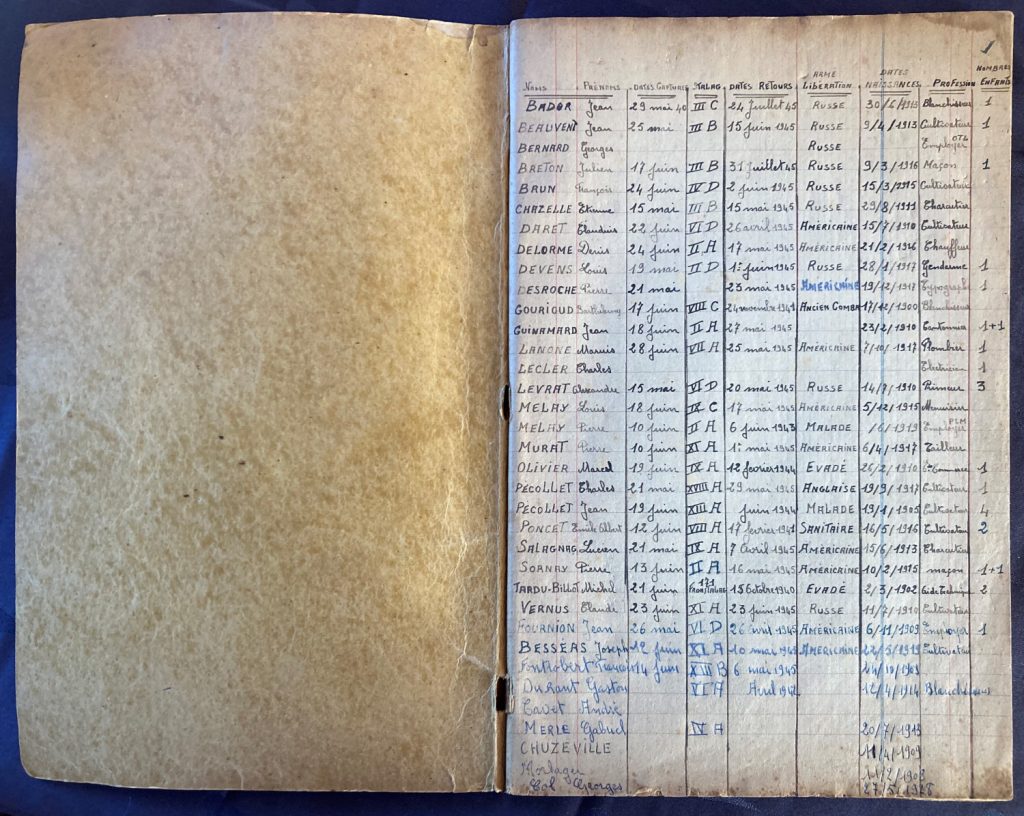 1
NOMS PRÉNOMS DATES CAPTURES STALAG DATES RETOURS ARMÉE LIBÉRATION DATES NAISSANCES PROFESSION NOMBRES ENFANTS
BADOR Jean 29 mai 40 III C 24 Juillet 45 RUSSE 30/6/1915 Blanchisseur 1
BEAUVENT Jean 25 mai III B 15 juin 1945 RUSSE 9/4/1913 Cultivateur 1
BERNARD Georges RUSSE Employer OTL
BRETON Julien 17 juin III B 31 Juillet 45 RUSSE 9/3/1916 Maçon 1
BRUN François 24 juin IV D 2 juin 1945 RUSSE 15/3/1915 Cultivateur
CHAZELLE Etienne 15 mai III B 15 mai 1945 RUSSE 29/8/1911 Charcutier
DARET Claudius 22 juin VI D 26 avril 1945 AMÉRICAINE 15/7/1910 Cultivateur
DELORME Denis 24 juin II A 17 mai 1945 AMÉRICAINE 21/2/1916 Chauffeur
DEVENS Louis 19 mai II D 1er juin 1945 RUSSE 28/1/1917 Gendarme 1
DESROCHE Pierre 21 mai 23 mai 1945 AMÉRICAINE 19/12/1917 Typographe 1
GOURIGUD Barthélemy 17 juin VIII C 24 novembre 1941 ANCIEN COMBA 17/12/1900 Blanchisseur
GUINAMARD Jean 18 juin II A 27 mai 1945 23/2/1910 Cantonnier 1+1
LANONE Marius 28 juin VII A 25 mai 1945 AMÉRICAINE 7/10/1917 Plombier 1
LECLER Charles Electricien 1
LEVRAT Alexandre 15 mai VI D 20 mai 1945 RUSSE 14/7/1910 Primeur 3
MELAY Louis 18 juin IX C 17 mai 1945 AMÉRICAINE 5/12/1915 Menuisier
MELAY Pierre 10 juin II A 6 juin 1943 MALADE /6/1919 Employer PLM
MURAT Pierre 10 juin XI A 1er mai 1945 AMÉRICAINE 6/4/1917 Tailleur
OLIVIER Marcel 19 juin IX A 12 fevrier 1944 EVADÉ 26/2/1910 1
PÉCOLLET Charles 21 mai XVIII A 29 mai 1945 ANGLAISE 19/9/1917 Cultivateur 1
PÉCOLLET Jean 19 juin XIII A juin 1944 MALADE 19/1/1905 Cultivateur 4
PONCET Emile Albert 12 juin VIII A 17 fevrier 1941 SANITAIRE 16/5/1916 Cultivateur 2
SALAGNAG Lucien 21 mai IX A 7 Avril 1945 AMÉRICAINE 15/6/1913 Charcutier
SORNAY Pierre 13 juin II A 16 mai 1945 AMÉRICAINE 10/2/1915 maçon 1+1
TARDU-BILLOT Michel 21 juin FRONTSTALAG 121 15 Octobre 1940 EVADÉ 2/3/1902 2
VERNUS Claude 23 juin XI A 23 juin 1945 RUSSE 11/7/1910 Cultivateur
FOURNION Jean 26 mai VI D 26 avril 1945 AMÉRICAINE 6/11/1909 Employer 1
BESSÈAS Joseph 12 juin XI A 10 mai 1945 AMÉRICAINE 22/5/1919 Cultivateur
FontRobert François 14 juin XIII B 6 mai 1945 14/10/1909
Durant Gaston VI A Avril 1942 12/4/1914 Blanchisseur
Cavet André
MERLE Gabriel IV A 20/7/1913
CHUZEVILLE 11/4/1909
11/2/1908
Col Georges 27/5/1928